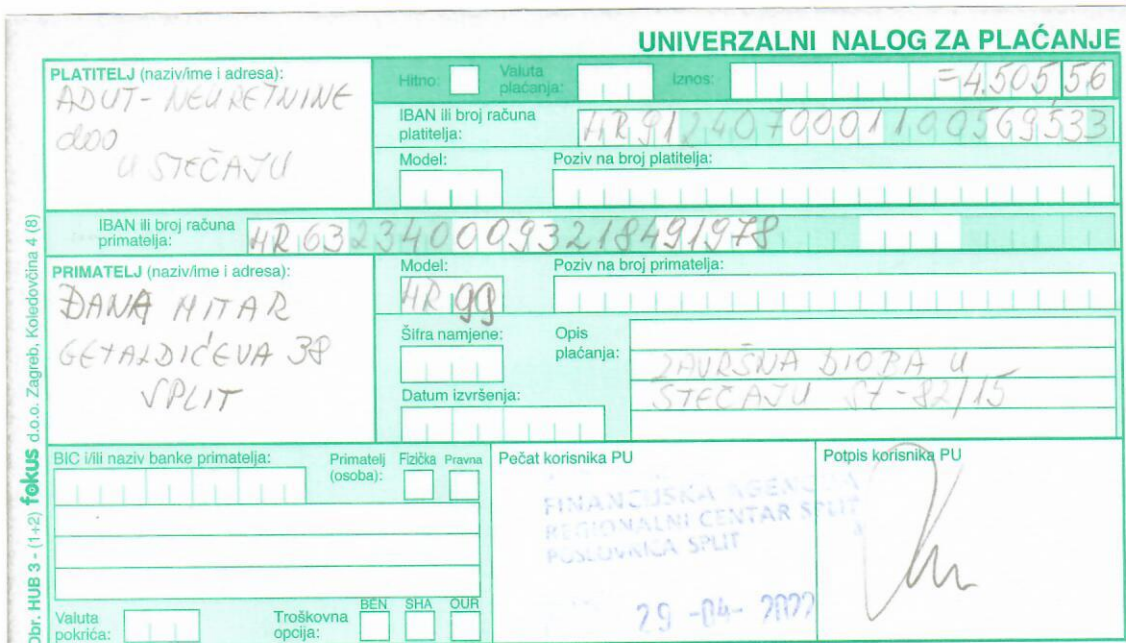 UNIVERZALNI NALOG ZA PLAĆANJE
PLATITELJ (naziv/ime i adresa):
ADUT-NEKRETNINE
doo
U STEČAJU
Hitno:
Valuta plaćanja:
Iznos:
=4.505 56
IBAN ili broj računa platitelja:
HR9124070001100569533
Model:
Poziv na broj platitelja:
IBAN ili broj računa primatelja:
HR6323400093218491978
PRIMATELJ (naziv/ime i adresa):
ĐANA MITAR
GETALDIĆEVA 38
SPLIT
Model:
HR99
Poziv na broj primatelja:
Šifra namjene:
Opis plaćanja:
ZAVRŠNA DIOBA U
STEČAJU St-82/15
Datum izvršenja:
BIC i/ili naziv banke primatelja:
Primatelj (osoba):
Fizička
Pravna
Pečat korisnika PU
FINANCIJSKA AGENCIJA
REGIONALNI CENTAR SPLIT
POSLOVNICA SPLIT
29 -04- 2022
Potpis korisnika PU
Valuta pokrića:
Troškovna opcija:
BEN
SHA
OUR
Obr. HUB 3 - (1+2) fokus d.o.o. Zagreb, Koledovčina 4 (8)